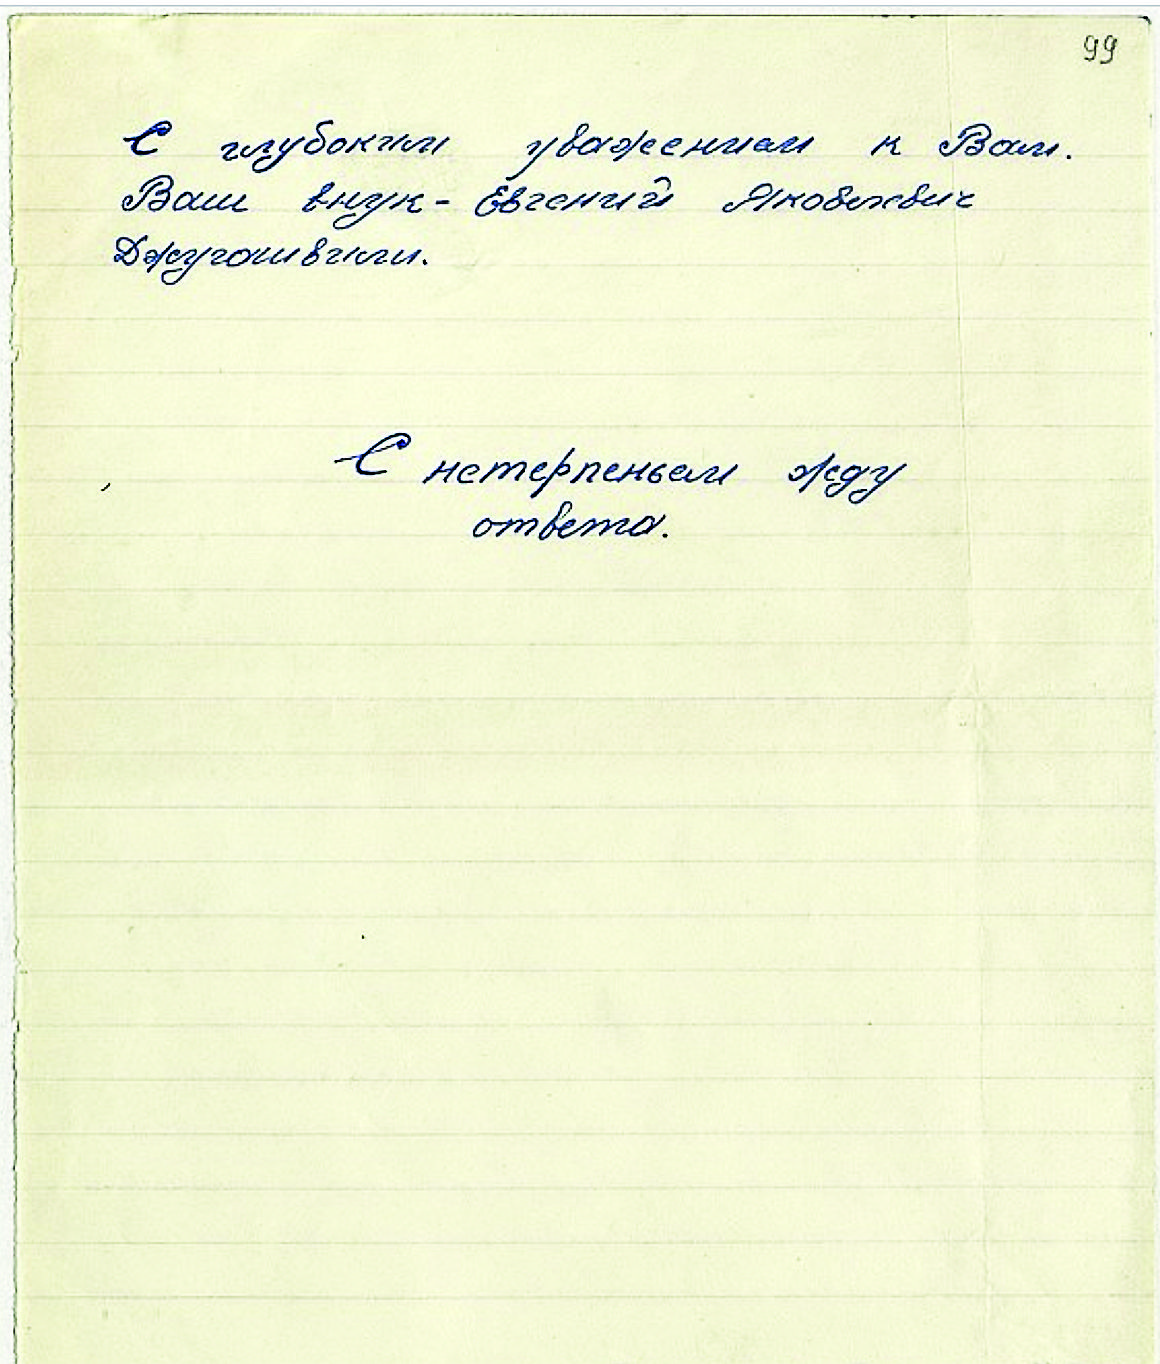 99
С глубоким уважением к Вам.
Ваш внук - Евгений Яковлевич
Джугашвили.
С нетерпеньем жду
ответа.